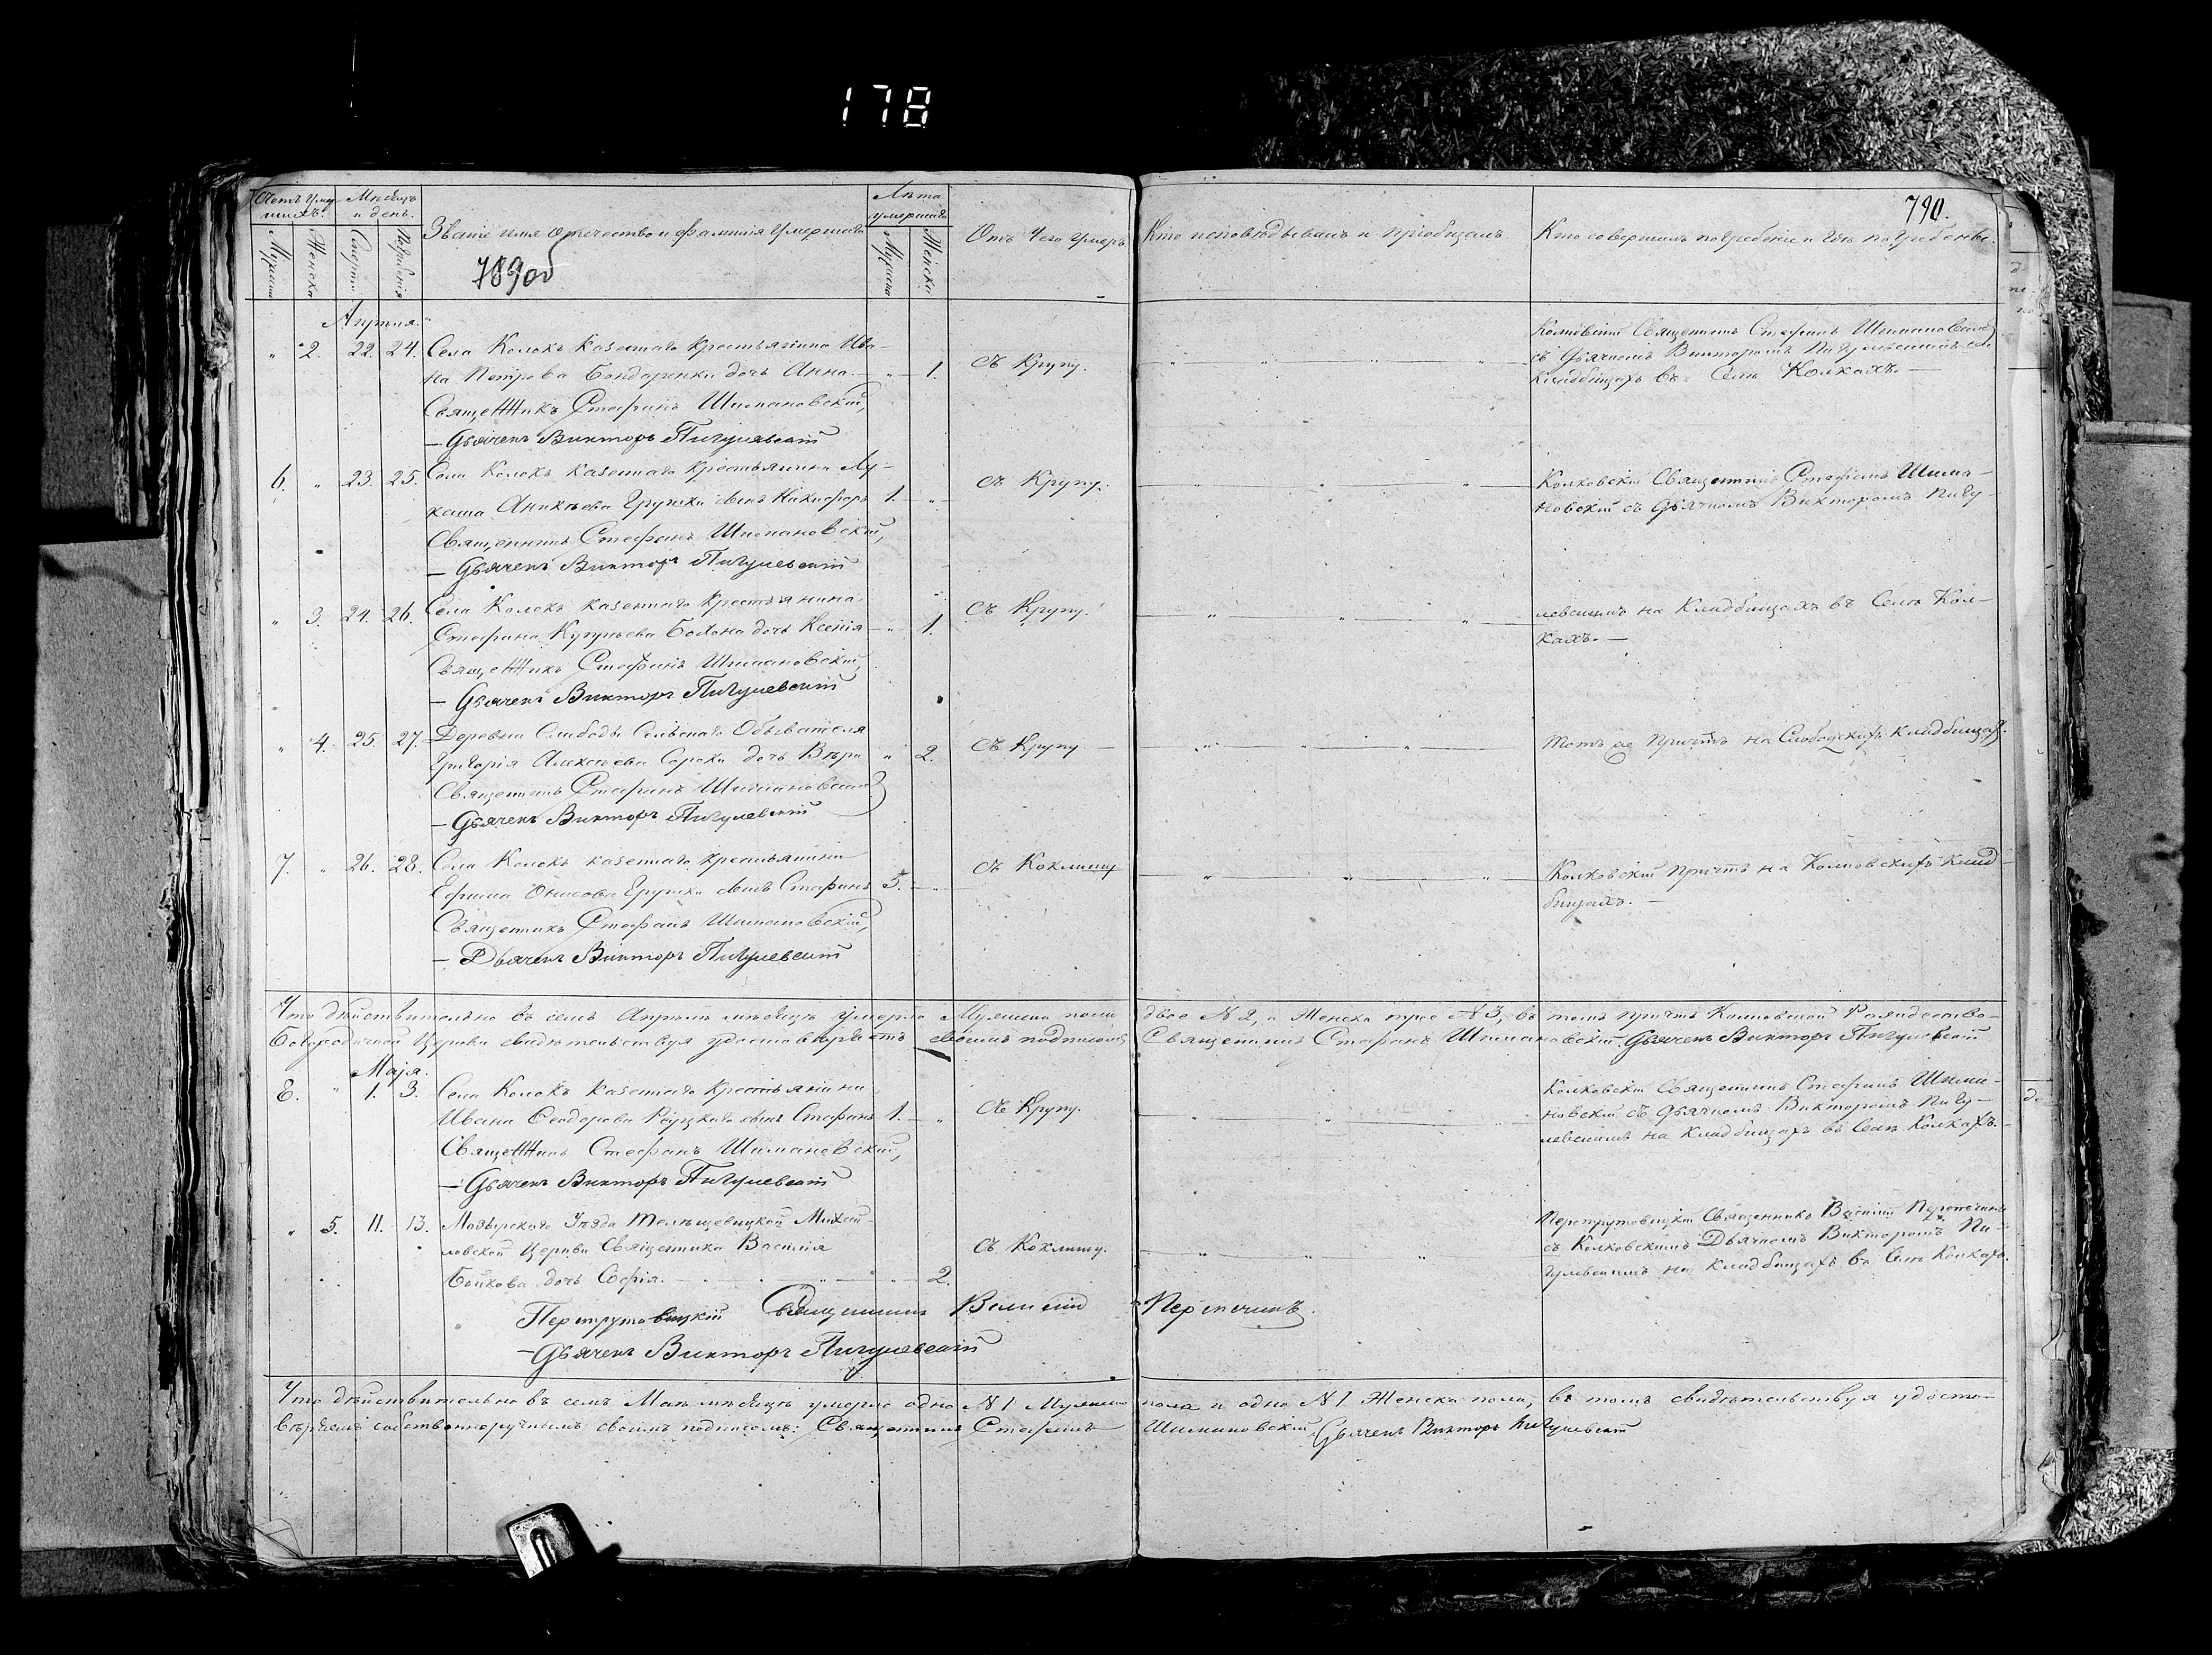 178
790.
Счетъ умершихъ.
Мѣсяцъ и день.
Званіе имя отчество и фамилія умершаго
Лѣта умершаго
Отъ чего умеръ
Кто исповѣдывалъ и пріобщалъ.
Кто совершалъ погребеніе и гдѣ погребены.
Мужска Женска Смерти Погребенія
Мужска Женска
789об
Апрѣля.
" 2. 22. 24. Села Колокъ казеннаго крестьянина Ива-
на Петрова Бондаренки дочь Анна. — " — 1. съ Крупу.
Священникъ Стефанъ Шимановскій,
— Дьячекъ Викторъ Пигулевскій
Колковскій Священникъ Стефанъ Шимановскій
съ Дьячкомъ Викторомъ Пигулевскимъ на
кладбищахъ въ Селѣ Колкахъ. —
6. " 23. 25. Села Колокъ казеннаго крестьянина Лу-
каша Аникѣева Грушки сынъ Никифоръ 1. — " съ Крупу.
Священникъ Стефанъ Шимановскій,
— Дьячекъ Викторъ Пигулевскій
Колковскій Священникъ Стефанъ Шима-
новскій съ Дьячкомъ Викторомъ Пигу-
" 3. 24. 26. Села Колокъ казеннаго крестьянина
Стефана дочь Ксенія — " — 1. съ Крупу.
Священникъ Стефанъ Шимановскій,
— Дьячекъ Викторъ Пигулевскій
левскимъ на Кладбищахъ въ Селѣ Кол-
кахъ. —
" 4. 25. 27. Деревни Слободы Сельскаго Обывателя
Григорія Алексѣева Сороки дочь Вѣра " 2. съ Крупу —
Священникъ Стефанъ Шимановскій
— Дьячекъ Викторъ Пигулевскій
тотъ же Причтъ на Слободскихъ кладбищахъ.
7. " 26. 28. Села Колокъ казеннаго крестьянина
Ефима Грушки сынъ Стефанъ 5. — " съ Коклишу
Священникъ Стефанъ Шимановскій,
— Дьячекъ Викторъ Пигулевскій
Колковскій Причтъ на Колковскихъ клад-
бищахъ. —
Что дѣйствительно въ семъ Апрѣлѣ мѣсяцѣ умерло Мужска пола двое N 2, а Женска трое N 3, въ томъ причтъ Колковской Рождество-
Богородичной Церкви свидѣтельствуя удостовѣряетъ своимъ подписомъ Священникъ Стефанъ Шимановскій. Дьячекъ Викторъ Пигулевскій
Маія.
8. " 1. 3. Села Колокъ казеннаго крестьянина
Ивана Ѳеодорова сынъ Стефанъ 1. — " съ Крупу.
Священникъ Стефанъ Шимановскій,
— Дьячекъ Викторъ Пигулевскій
Колковскій Священникъ Стефанъ Шима-
новскій съ Дьячкомъ Викторомъ Пигу-
левскимъ на кладбищахъ въ Селѣ Колкахъ. —
" 5. 11. 13. Мозырскаго Уѣзда Михай-
ловской Церкви Священника Василія
Бойкова дочь Софія. — " — 2. съ Коклишу.
Перетрутовицкій Священникъ Василій
— Дьячекъ Викторъ Пигулевскій
Перетрутовицкій Священникъ Василій
съ Колковскимъ Дьячкомъ Викторомъ Пи-
гулевскимъ на кладбищахъ въ Селѣ Колкахъ.
Что дѣйствительно въ семъ Маѣ мѣсяцѣ умерло одно N 1 Мужска пола и одна N 1. Женска пола, въ томъ свидѣтельствуя удосто-
вѣряемъ собственноручнымъ своимъ подписомъ: Священникъ Стефанъ Шимановскій. Дьячекъ Викторъ Пигулевскій